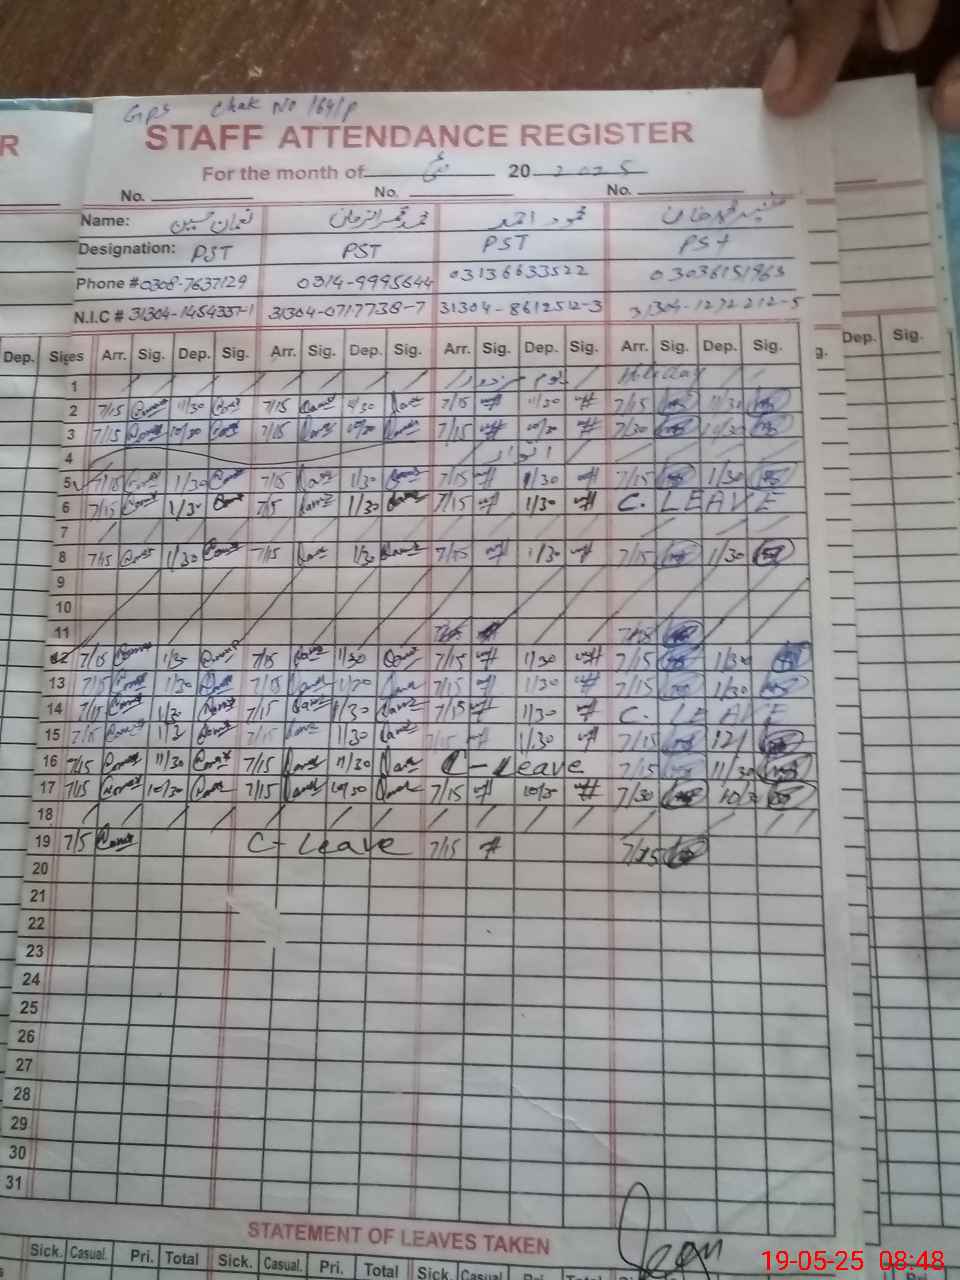 GPS Chak No 164/P
R
STAFF ATTENDANCE REGISTER
For the month of مئی 20 2025
No. No. No.
Name: نعمان حسین محمد عمر الرحمان محمود احمد محمد خان
Designation: PST PST PST PST
Phone # 0308-7637129 0314-9995644 03136633522 03036151963
N.I.C # 31304-1454337-1 31304-0717738-7 31304-8612512-3 31304-1272212-5
Dep. Sig. Arr. Sig. Dep. Sig. Arr. Sig. Dep. Sig. Arr. Sig. Dep. Sig. Arr. Sig. Dep. Sig. g. Dep. Sig.
1 یوم مزدور Holiday
2 7/15 11/30 7/15 11/30 7/15 11/30 7/15 11/30
3 7/15 10/30 7/15 10/30 7/15 10/30 7/30 10/30
4 اتوار
5 7/15 1/30 7/15 1/30 7/15 1/30 7/15 1/30
6 7/15 1/30 7/5 1/30 7/15 1/30 C. LEAVE
7
8 7/15 1/30 7/15 1/30 7/15 1/30 7/15 1/30
9
10
11 7/15 7/15
12 7/15 1/3 7/15 1/30 7/15 1/30 7/15 1/30
13 7/15 1/30 7/15 1/30 7/15 1/30 7/15 1/30
14 7/15 1/30 7/15 1/30 7/15 1/30 C. LEAVE
15 7/15 1/3 7/15 1/30 7/15 1/30 7/15 12/
16 7/15 11/30 7/15 11/30 C-Leave 7/15 11/30
17 7/15 10/30 7/15 10/30 7/15 10/30 7/30 10/30
18
19 7/5 C-Leave 7/15 7/15
20
21
22
23
24
25
26
27
28
29
30
31
STATEMENT OF LEAVES TAKEN
Sick. Casual. Pri. Total Sick. Casual. Pri. Total Sick. Casual. Pri. Total
19-05-25 08:48